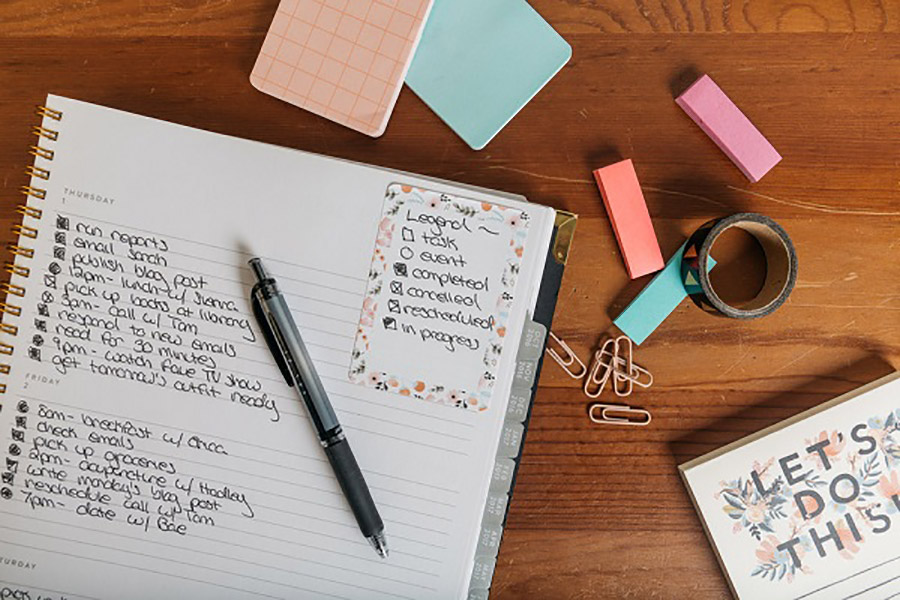 THURSDAY
1
run reports
email Sarah
publish blog post
12pm- lunch w/ Jenica
pick up books at library
3pm- call w/ Tom
respond to new emails
read for 30 minutes
9pm- watch fave TV show
get tomorrow's outfit ready
FRIDAY
2
8am- breakfast w/ Erica
check emails
pick up groceries
2pm- acupuncture w/ Hadley
write monday's blog post
reschedule call w/ Tom
7pm- date w/ Bae
TURDAY
Legend ~
task
event
completed
cancelled
rescheduled
in progress
LET'S
DO
THIS!